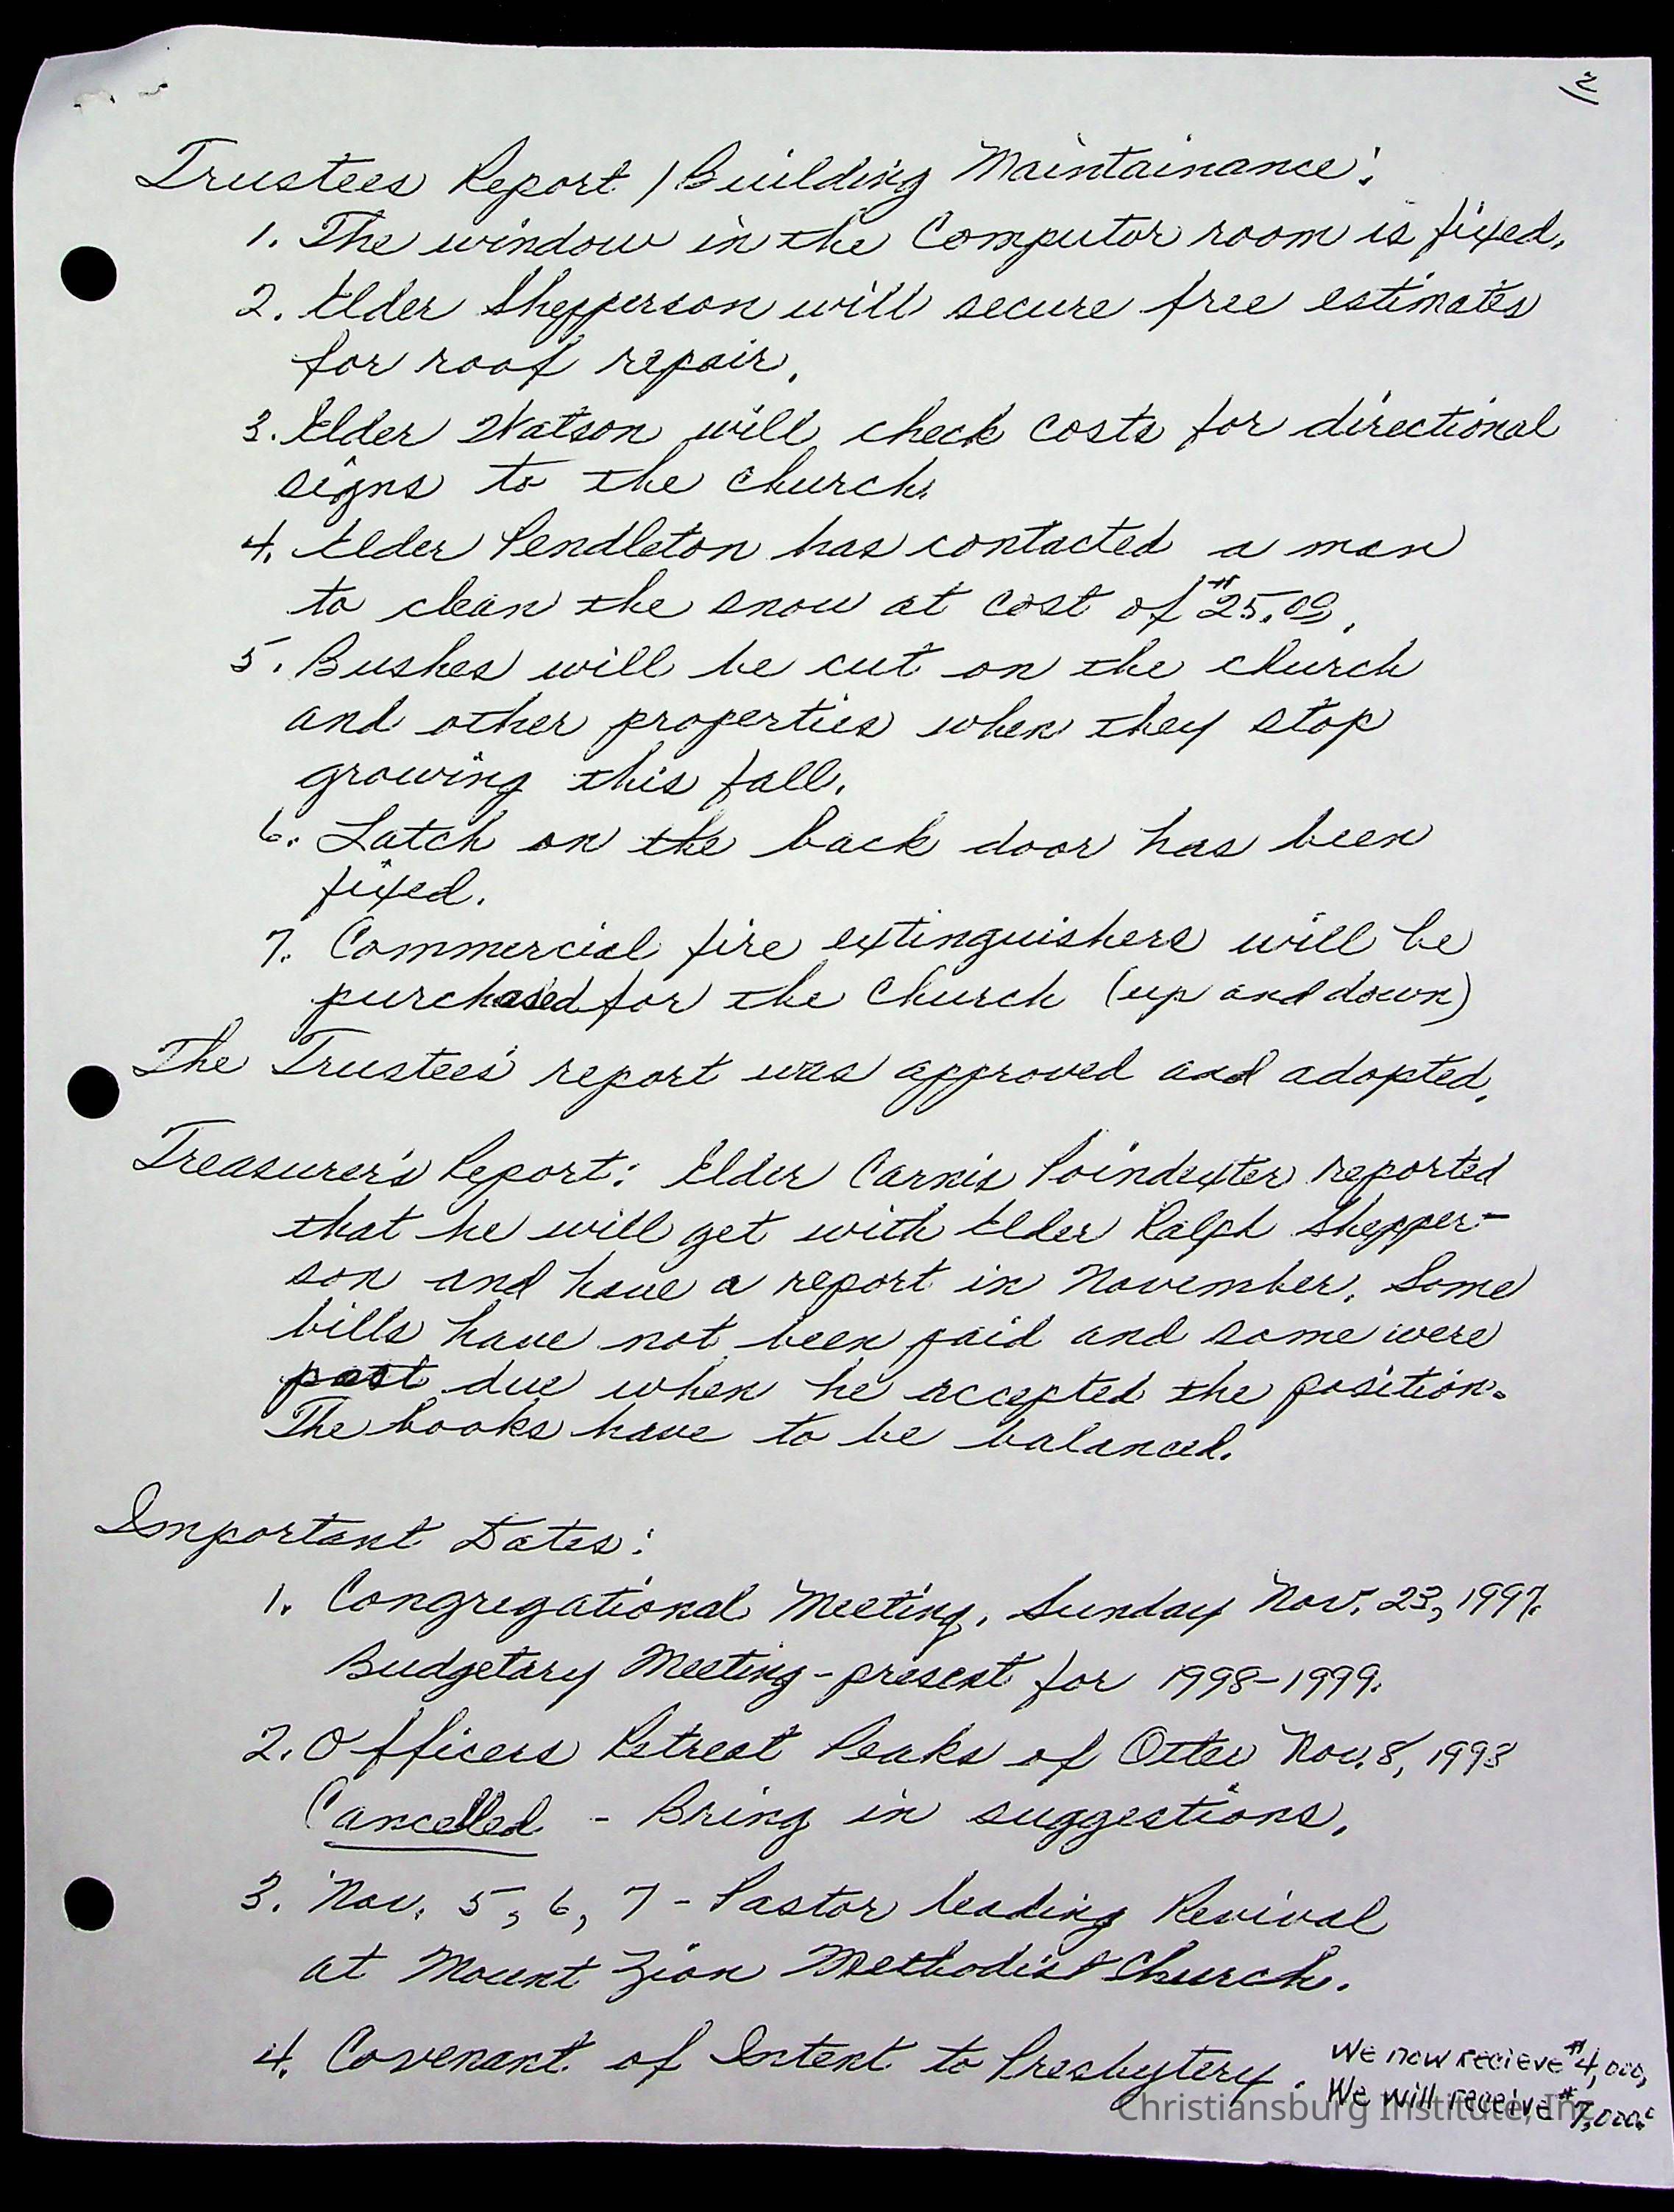 2
Trustees Report / Building Maintainance:
1. The window in the Computor room is fixed.
2. Elder Shepperson will secure free estimates
for roof repair.
3. Elder Watson will check costs for directional
signs to the church.
4. Elder Pendleton has contacted a man
to clean the snow at cost of $25.00.
5. Bushes will be cut on the church
and other properties when they stop
growing this fall.
6. Latch on the back door has been
fixed.
7. Commercial fire extinguishers will be
purchased for the Church (up and down)
The Trustees' report was approved and adopted.
Treasurer's Report: Elder Carnis Poindexter reported
that he will get with Elder Ralph Shepper-
son and have a report in November. Some
bills have not been paid and some were
past due when he accepted the position.
The books have to be balanced.
Important Dates:
1. Congregational Meeting, Sunday Nov. 23, 1997.
Budgetary Meeting - present for 1998-1999.
2. Officers Retreat Peaks of Otter Nov. 8, 1998
Cancelled - Bring in suggestions.
3. Nov. 5, 6, 7 - Pastor leading Revival
at Mount Zion Methodist Church.
4. Covenant of Intent to Presbytery.
We now recieve $4,000,
We will receive $7,000.
Christiansburg Institute, Inc.